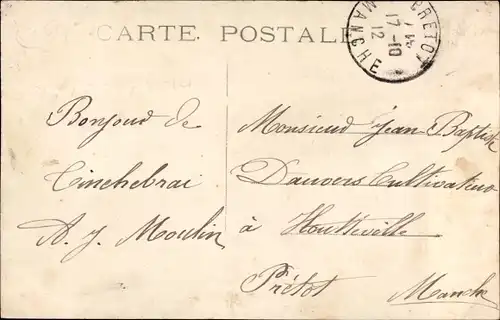 CARTE POSTALE
PRETOT
17-10
12
MANCHE
Bonjour de
Tinchebrai
A. J. Moulin
Monsieur Jean Baptiste
Dauvers Cultivateur
à Houtteville
Prétot Manche